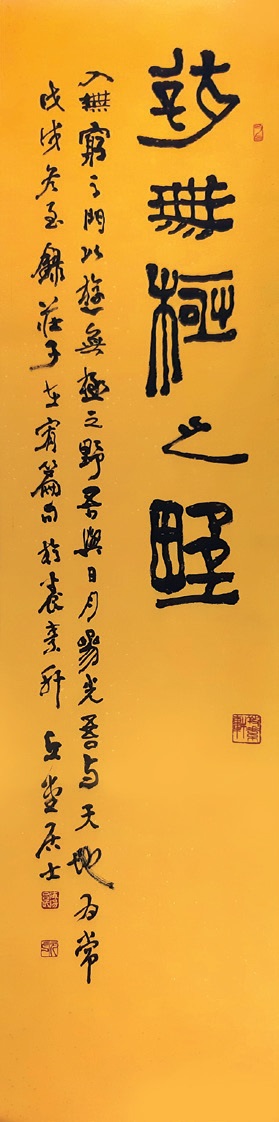 遊無極之野
入無窮之門以遊無極之野吾與日月參光吾與天地為常
戊戌冬至錄莊子在宥篇句於養素軒 居士